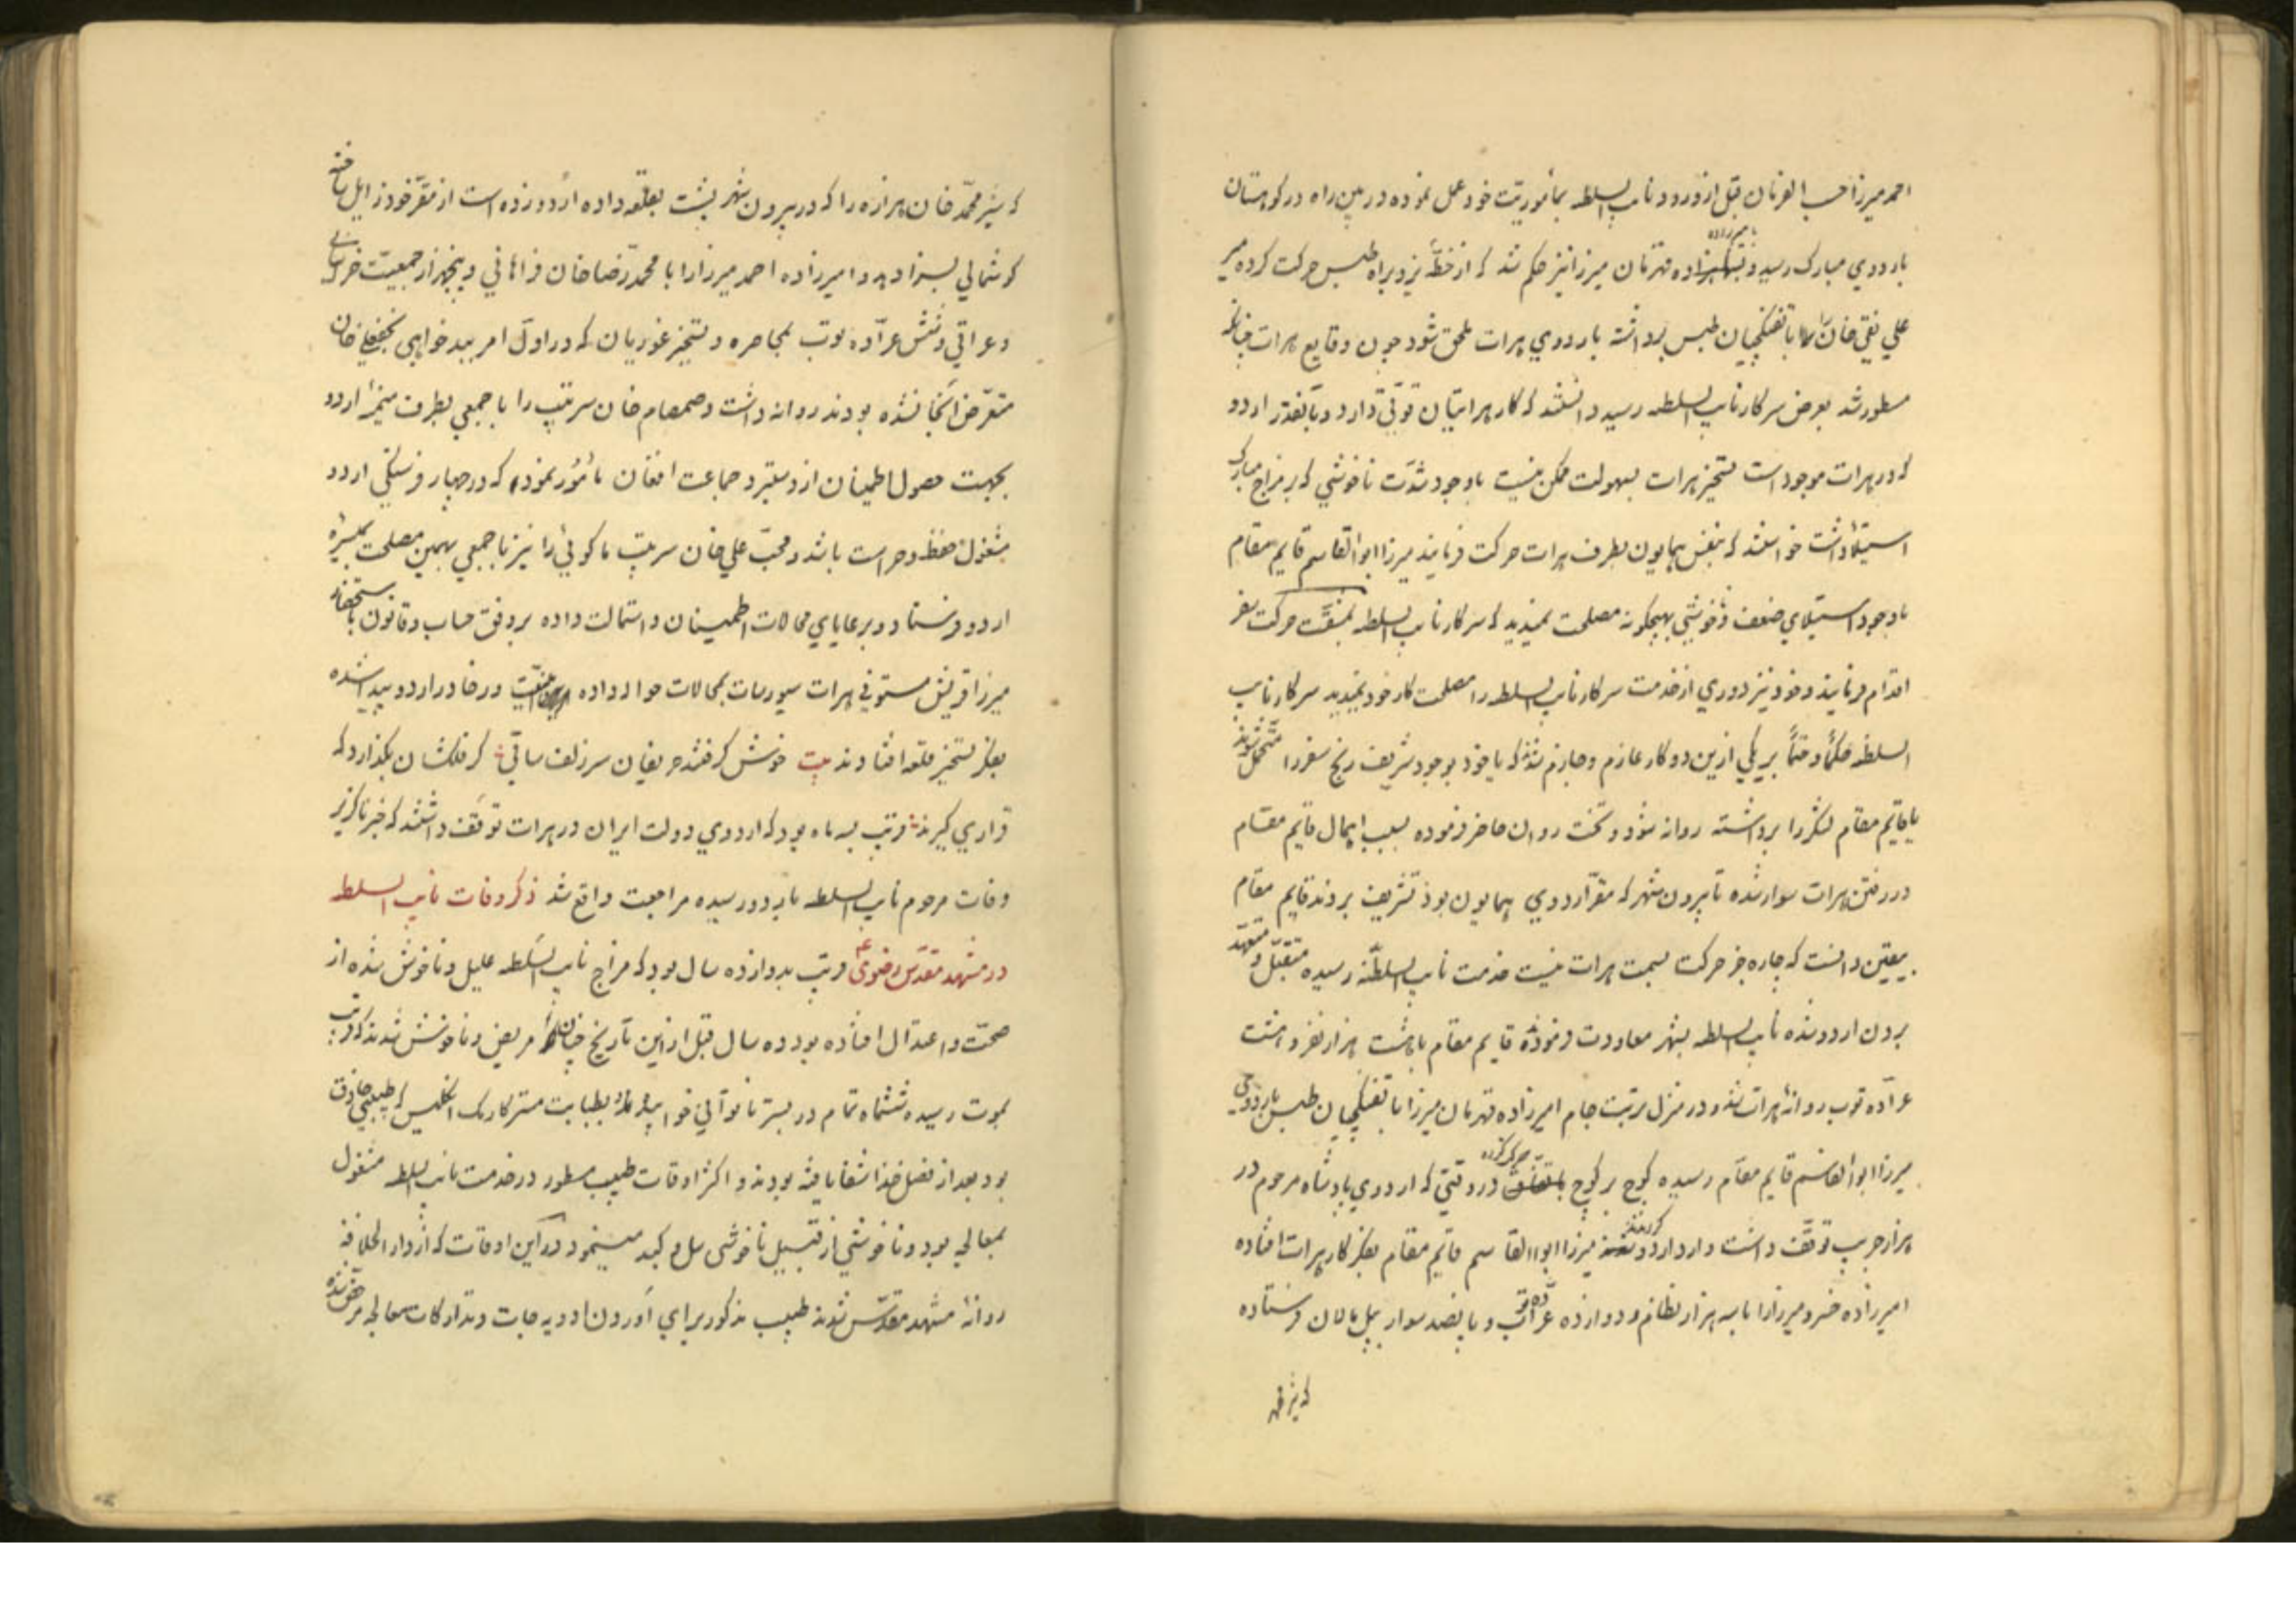 احمد میرزا حسب الفرمان قبل از ورود نایب السلطه بمأموریّت خود عمل نموده در بین راه در کوهستان
باردوی مبارک رسید و بامیرزاده قهرمان میرزا نیز حکم شد که از خطّهٔ یزد براه طبس حرکت کرده میر
علی نقی خان را با تفنکچیان طبس برداشته باردوی هرات ملحق شود چون وقایع هرات چنانکه
مسطور شد بعرض سرکار نایب السلطه رسید دانستند که کار هراتیان قوّتی دارد و بآنقدر اردو
که در هرات موجود است تسخیر هرات بسهولت ممکن نیست باوجود شدّت ناخوشی که بر مزاج مبارک
استیلا داشت خواستند که بنفس همایون بطرف هرات حرکت فرمایند میرزا ابوالقاسم قایم مقام
باوجود استیلای ضعف و ناخوشی بهیچکونه مصلحت ندید که سرکار نایب السلطه بمشقّت حرکت سفر
اقدام فرمایند و خود نیز دوری از خدمت سرکار نایب السلطه را مصلحت کار خود ندید سرکار نایب
السلطه حکماً و حتماً بر یکی ازین دو کار عازم و جازم شدند که یا خود بوجود شریف رنج سفر را متحمّل شوند
یا قایم مقام لشکر را برداشته روانه شود و تخت روان حاضر فرموده بسبب اهمال قایم مقام
در رفتن هرات سوار شده تا بیرون شهر که مقرّ اردوی همایون بود تشریف بردند قایم مقام
بیقین دانست که چاره جز حرکت بسمت هرات نیست خدمت نایب السلطه رسیده متقبّل و متعهّد
بردن اردو شده نایب السلطه بشهر معاودت فرموده قایم مقام با هشت هزار نفر و هشت
عرّاده توپ روانهٔ هرات شد و در منزل تربت جام امیرزاده قهرمان میرزا با تفنکچیان طبس باردوی
میرزا ابوالقاسم قایم مقام رسیده کوچ بر کوچ حرکت کرده در وقتی که اردوی پادشاه مرحوم در
هزار جریب توقّف داشت وارد اردو کردیدند میرزا ابوالقاسم قایم مقام بفکر کار هرات افتاده
امیرزاده خسرو میرزا را با سه هزار نظام و دوازده عرّاده توپ و پانصد سوار بپل مالان فرستاده
که شیر محمّد
که شیر محمّد خان هزاره را که در بیرون شهر پشت بقلعه داده اردو زده است از مقرّ خود زایل ساخته
کوشمالی بسزا دهد و امیرزاده احمد میرزا را با محمّد رضا خان فراهانی و پنجهزار جمعیّت خراسانی
و عراقی و شش عرّاده توپ بمحاصره و تسخیر غوریان که در اوّل امر ببدخواهی نجفعلی خان
متعرّض آنجا نشده بودند روانه داشت و صمصام خان سرتیپ را با جمعی بطرف میمنهٔ اردو
بجهت حصول اطمینان از دستبرد جماعت افغان مأمور نمود که در چهار فرسنکی اردو
مشغول حفظ و حراست باشد و محبّ علی خان سرتیپ ماکوئی را نیز با جمعی بهمین مصلحت بمیسرهٔ
اردو فرستاد و برعایای محالات اطمینان و استمالت داده بر وفق حساب و قانون باستحضار
میرزا قریش مستوفی هرات سیورسات بمحالات حواله داده امنیّت و رفاه در اردو پیدا شده
بفکر تسخیر قلعه افتادند بیت خوش کرفتند حریفان سر زلف ساقی کر فلکشان بکذارد که
قراری کیرند قریب سه ماه بود که اردوی دولت ایران در هرات توقّف داشتند که خبر ناکزیر
وفات مرحوم نایب السلطه باردو رسیده مراجعت واقع شد ذکر وفات نایب السلطه
در مشهد مقدّس رضوی ع قریب بدوازده سال بود که مزاج نایب السلطه علیل و ناخوش شده از
صحّت و اعتدال افتاده بود ده سال قبل ازین تاریخ چنان مریض و ناخوش شدند که قریب
بموت رسیده ششماه تمام در بستر ناتوانی خوابیده بطبابت مستر کارمک انکلیس که طبیبی حاذق
بود بعد از فضل خدا شفا یافته بودند و اکثر اوقات طبیب مسطور در خدمت نایب السلطه مشغول
بمعالجه بود و ناخوشی از قبیل ناخوشی سل و کبد مینمود در این اوقات که از دار الخلافه
روانهٔ مشهد مقدّس شدند طبیب مذکور برای آوردن ادویه جات و تدارکات معالجه مرخّص شده